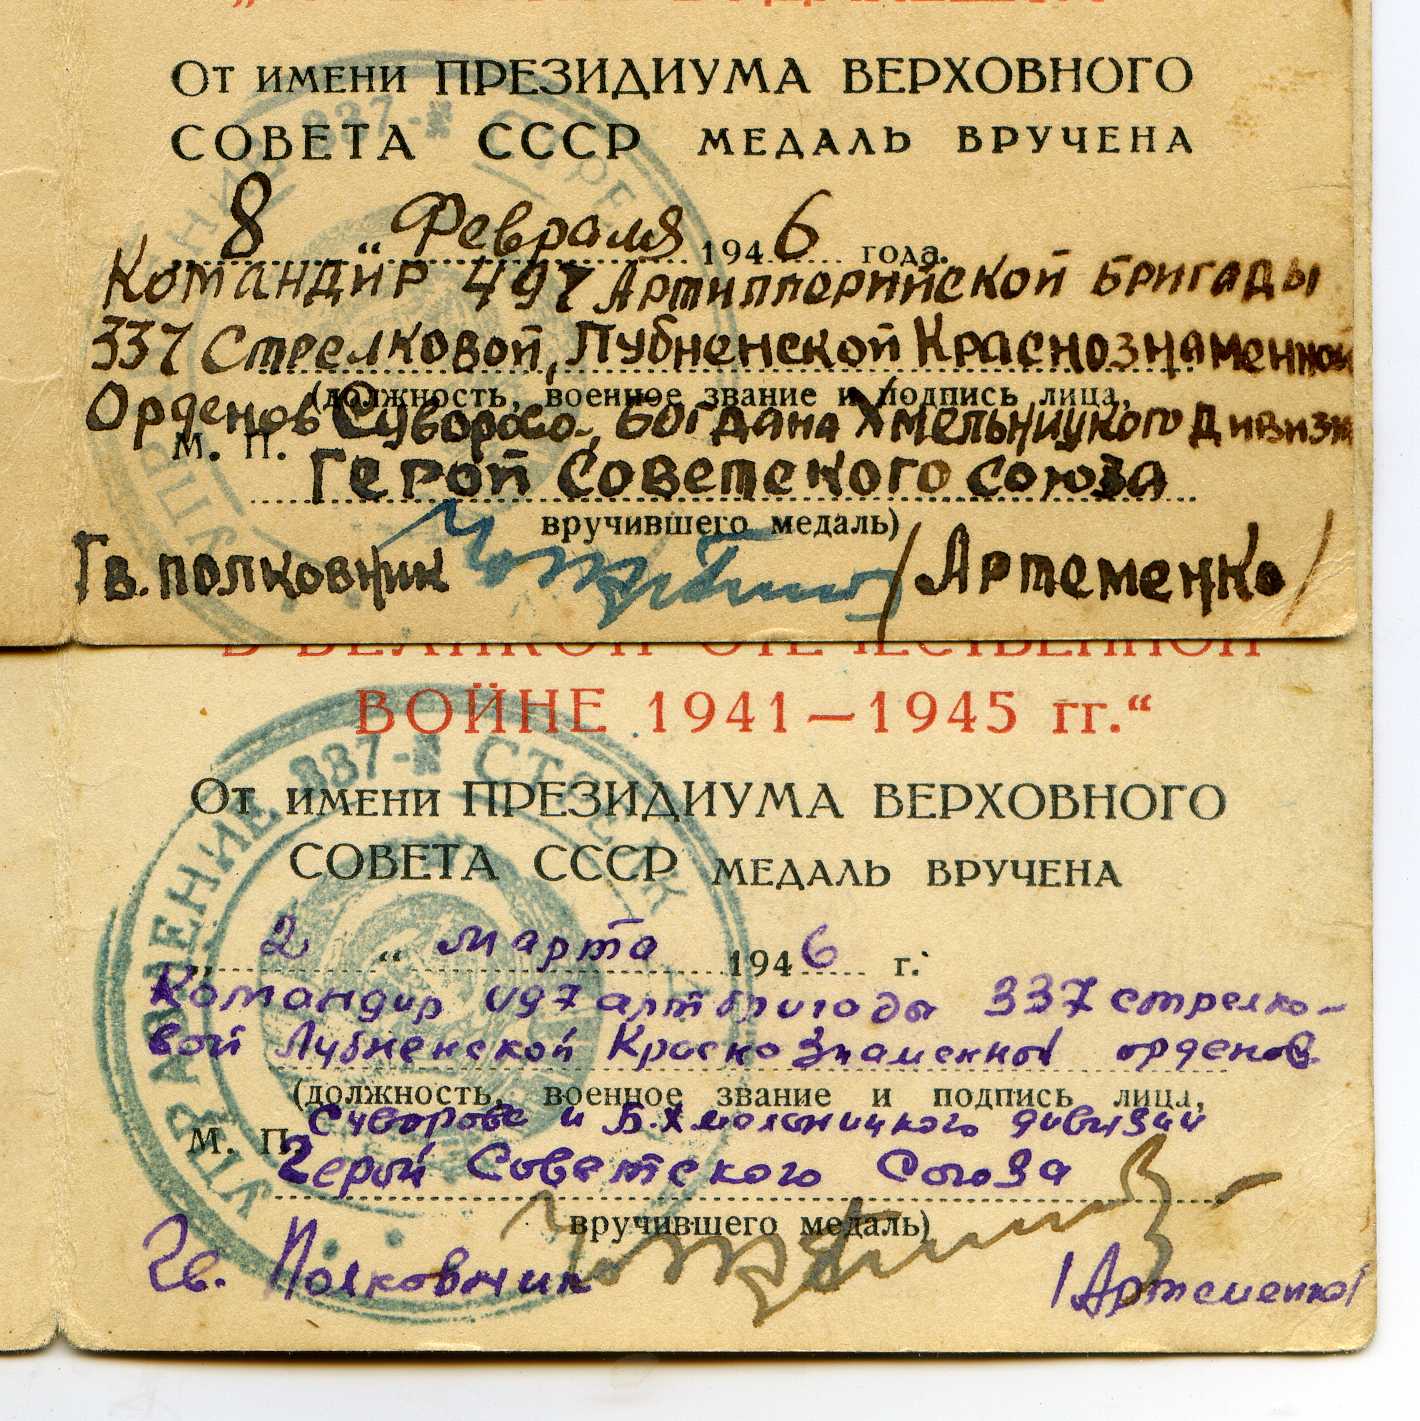 От имени ПРЕЗИДИУМА ВЕРХОВНОГО
СОВЕТА СССР МЕДАЛЬ ВРУЧЕНА
8 “ Февраля 1946 года.
Командир 497 Артиллерийской бригады
337 Стрелковой, Лубненской Краснознаменной
(должность, военное звание и подпись лица,
Орденов Суворова, Богдана Хмельницкого Дивизии
М. П.
Герой Советского союза
вручившего медаль)
Гв. полковник /Артеменко/
В ВЕЛИКОЙ ОТЕЧЕСТВЕННОЙ
ВОЙНЕ 1941—1945 гг.“
УПРАВЛЕНИЕ 337-й СТРЕЛК
От имени ПРЕЗИДИУМА ВЕРХОВНОГО
СОВЕТА СССР МЕДАЛЬ ВРУЧЕНА
„ 2 “ марта 1946 г.
Командир 497 артбригады 337 стрелко-
вой Лубненской Краснознаменной орденов
(должность, военное звание и подпись лица,
Суворова и Б. Хмельницкого дивизии
М. П.
Герой Советского Союза
вручившего медаль)
Гв. Полковник /Артеменко/